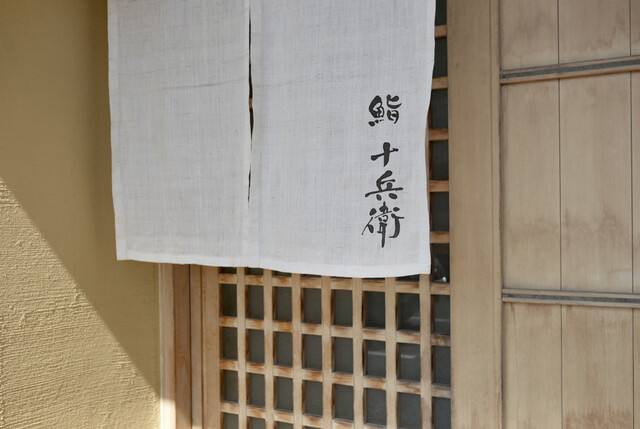 鮨 十兵衛